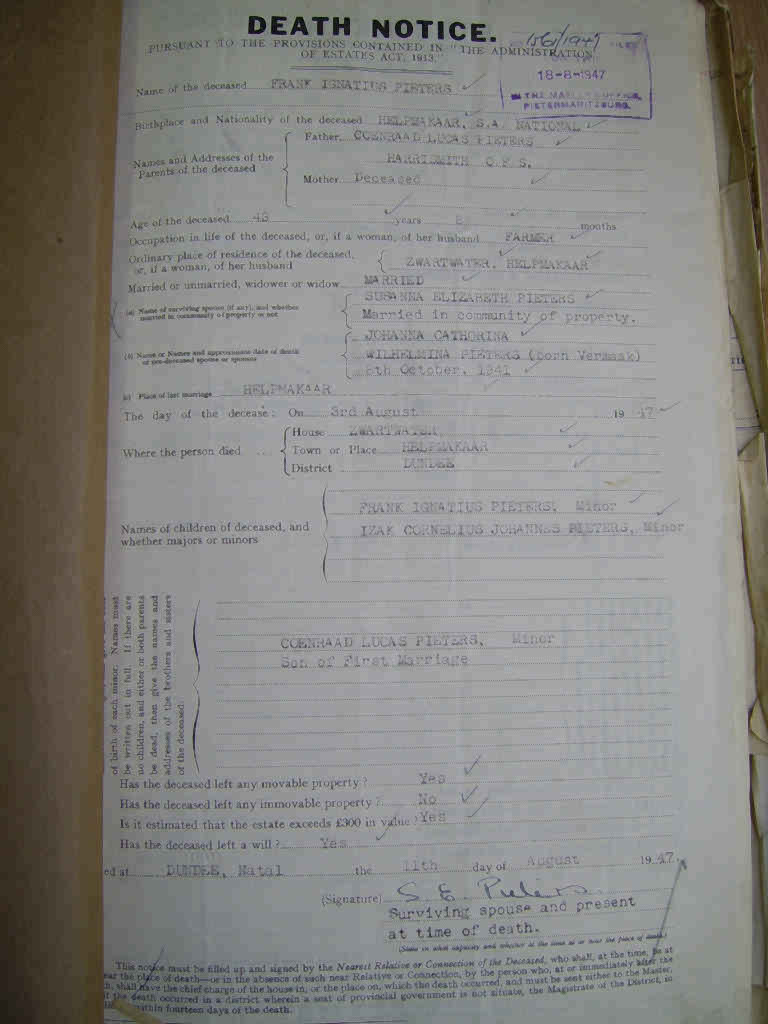 DEATH NOTICE.
PURSUANT TO THE PROVISIONS CONTAINED IN "THE ADMINISTRATION
OF ESTATES ACT, 1913."
1561/1947
18-8-1947
IN THE MASTER'S OFFICE,
PIETERMARITZBURG.
Name of the deceased FRANK IGNATIUS PIETERS
Birthplace and Nationality of the deceased HELPMAKAAR, S.A. NATIONAL
Names and Addresses of the
Parents of the deceased
Father, COENRAAD LUCAS PIETERS
HARRISMITH O F S.
Mother Deceased
Age of the deceased 43 years 8 months
Occupation in life of the deceased, or, if a woman, of her husband FARMER
Ordinary place of residence of the deceased,
or, if a woman, of her husband
ZWARTWATER, HELPMAKAAR
Married or unmarried, widower or widow MARRIED
(a) Name of surviving spouse (if any), and whether
married in community of property or not
SUSANNA ELIZABETH PIETERS
Married in community of property.
(b) Name or Names and approximate date of death
of pre-deceased spouse or spouses
JOHANNA CATHORINA
WILHELMINA PIETERS (born Vermaak)
8th October, 1941
(c) Place of last marriage HELPMAKAAR
The day of the decease: On 3rd August 1947
Where the person died ...
House ZWARTWATER
Town or Place HELPMAKAAR
District DUNDEE
Names of children of deceased, and
whether majors or minors
FRANK IGNATIUS PIETERS, Minor
IZAK CORNELIUS JOHANNES PIETERS, Minor
of birth of each minor. Names must
be written out in full. If there are
no children, and either or both parents
be dead, then give the names and
addresses of the brothers and sisters
of the deceased.
COENRAAD LUCAS PIETERS, Minor
Son of First Marriage
Has the deceased left any movable property? Yes
Has the deceased left any immovable property? No
Is it estimated that the estate exceeds £300 in value? Yes
Has the deceased left a will? Yes
ed at DUNDEE, Natal the 11th day of August 1947.
(Signature) S. E. Pieters.
Surviving spouse and present
at time of death.
(State in what capacity and whether at the time at or near the place of death.)
This notice must be filled up and signed by the Nearest Relative or Connection of the Deceased, who shall, at the time, be at
ear the place of death—or in the absence of such near Relative or Connection, by the person who, at or immediately after the
h, shall have the chief charge of the house in, or the place on, which the death occurred, and must be sent either to the Master,
if the death occurred in a district wherein a seat of provincial government is not situate, the Magistrate of the District, in
within fourteen days of the death.